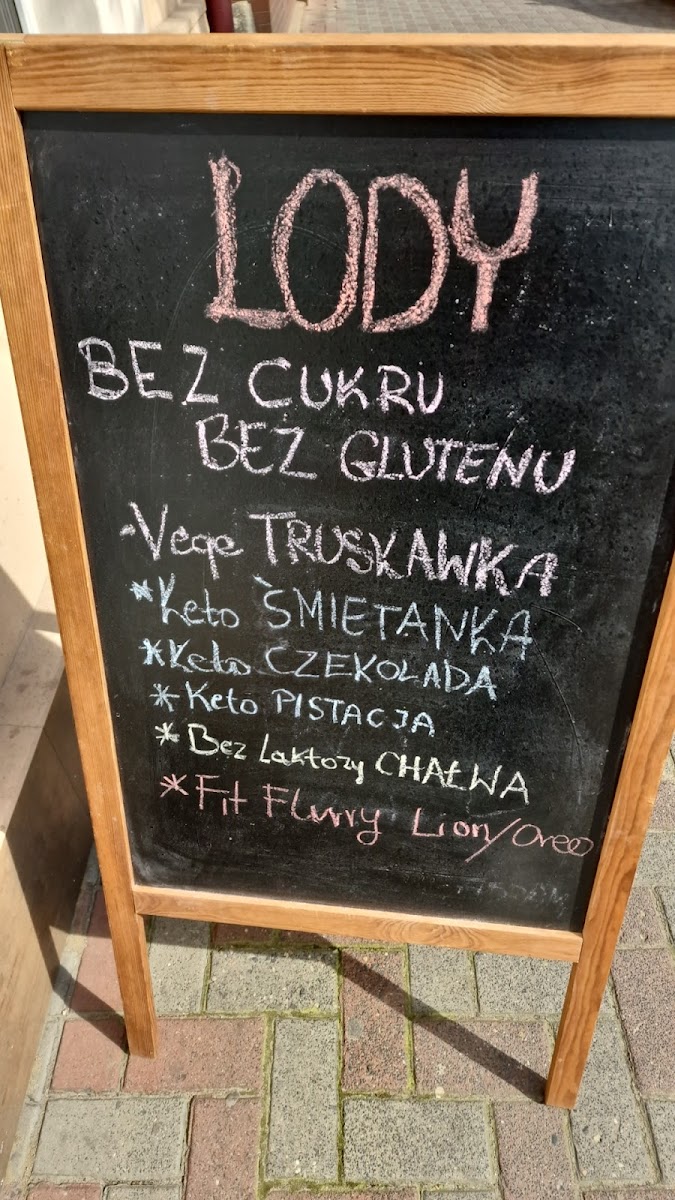 LODY
BEZ CUKRU
BEZ GLUTENU
-Vege TRUSKAWKA
*Keto ŚMIETANKA
*Keto CZEKOLADA
*Keto PISTACJA
*Bez Laktozy CHAŁWA
*Fit Flurry Lion/Oreo